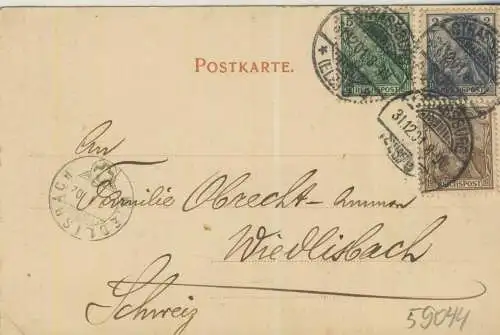 POSTKARTE.
5 REICHSPOST
2 2 REICHSPOST
REICHSPOST
STRASSBURG
(ELS.)
31.12.01
WIEDLISBACH
An
Familie Obrecht-Ammann
Wiedlisbach
Schweiz
59044